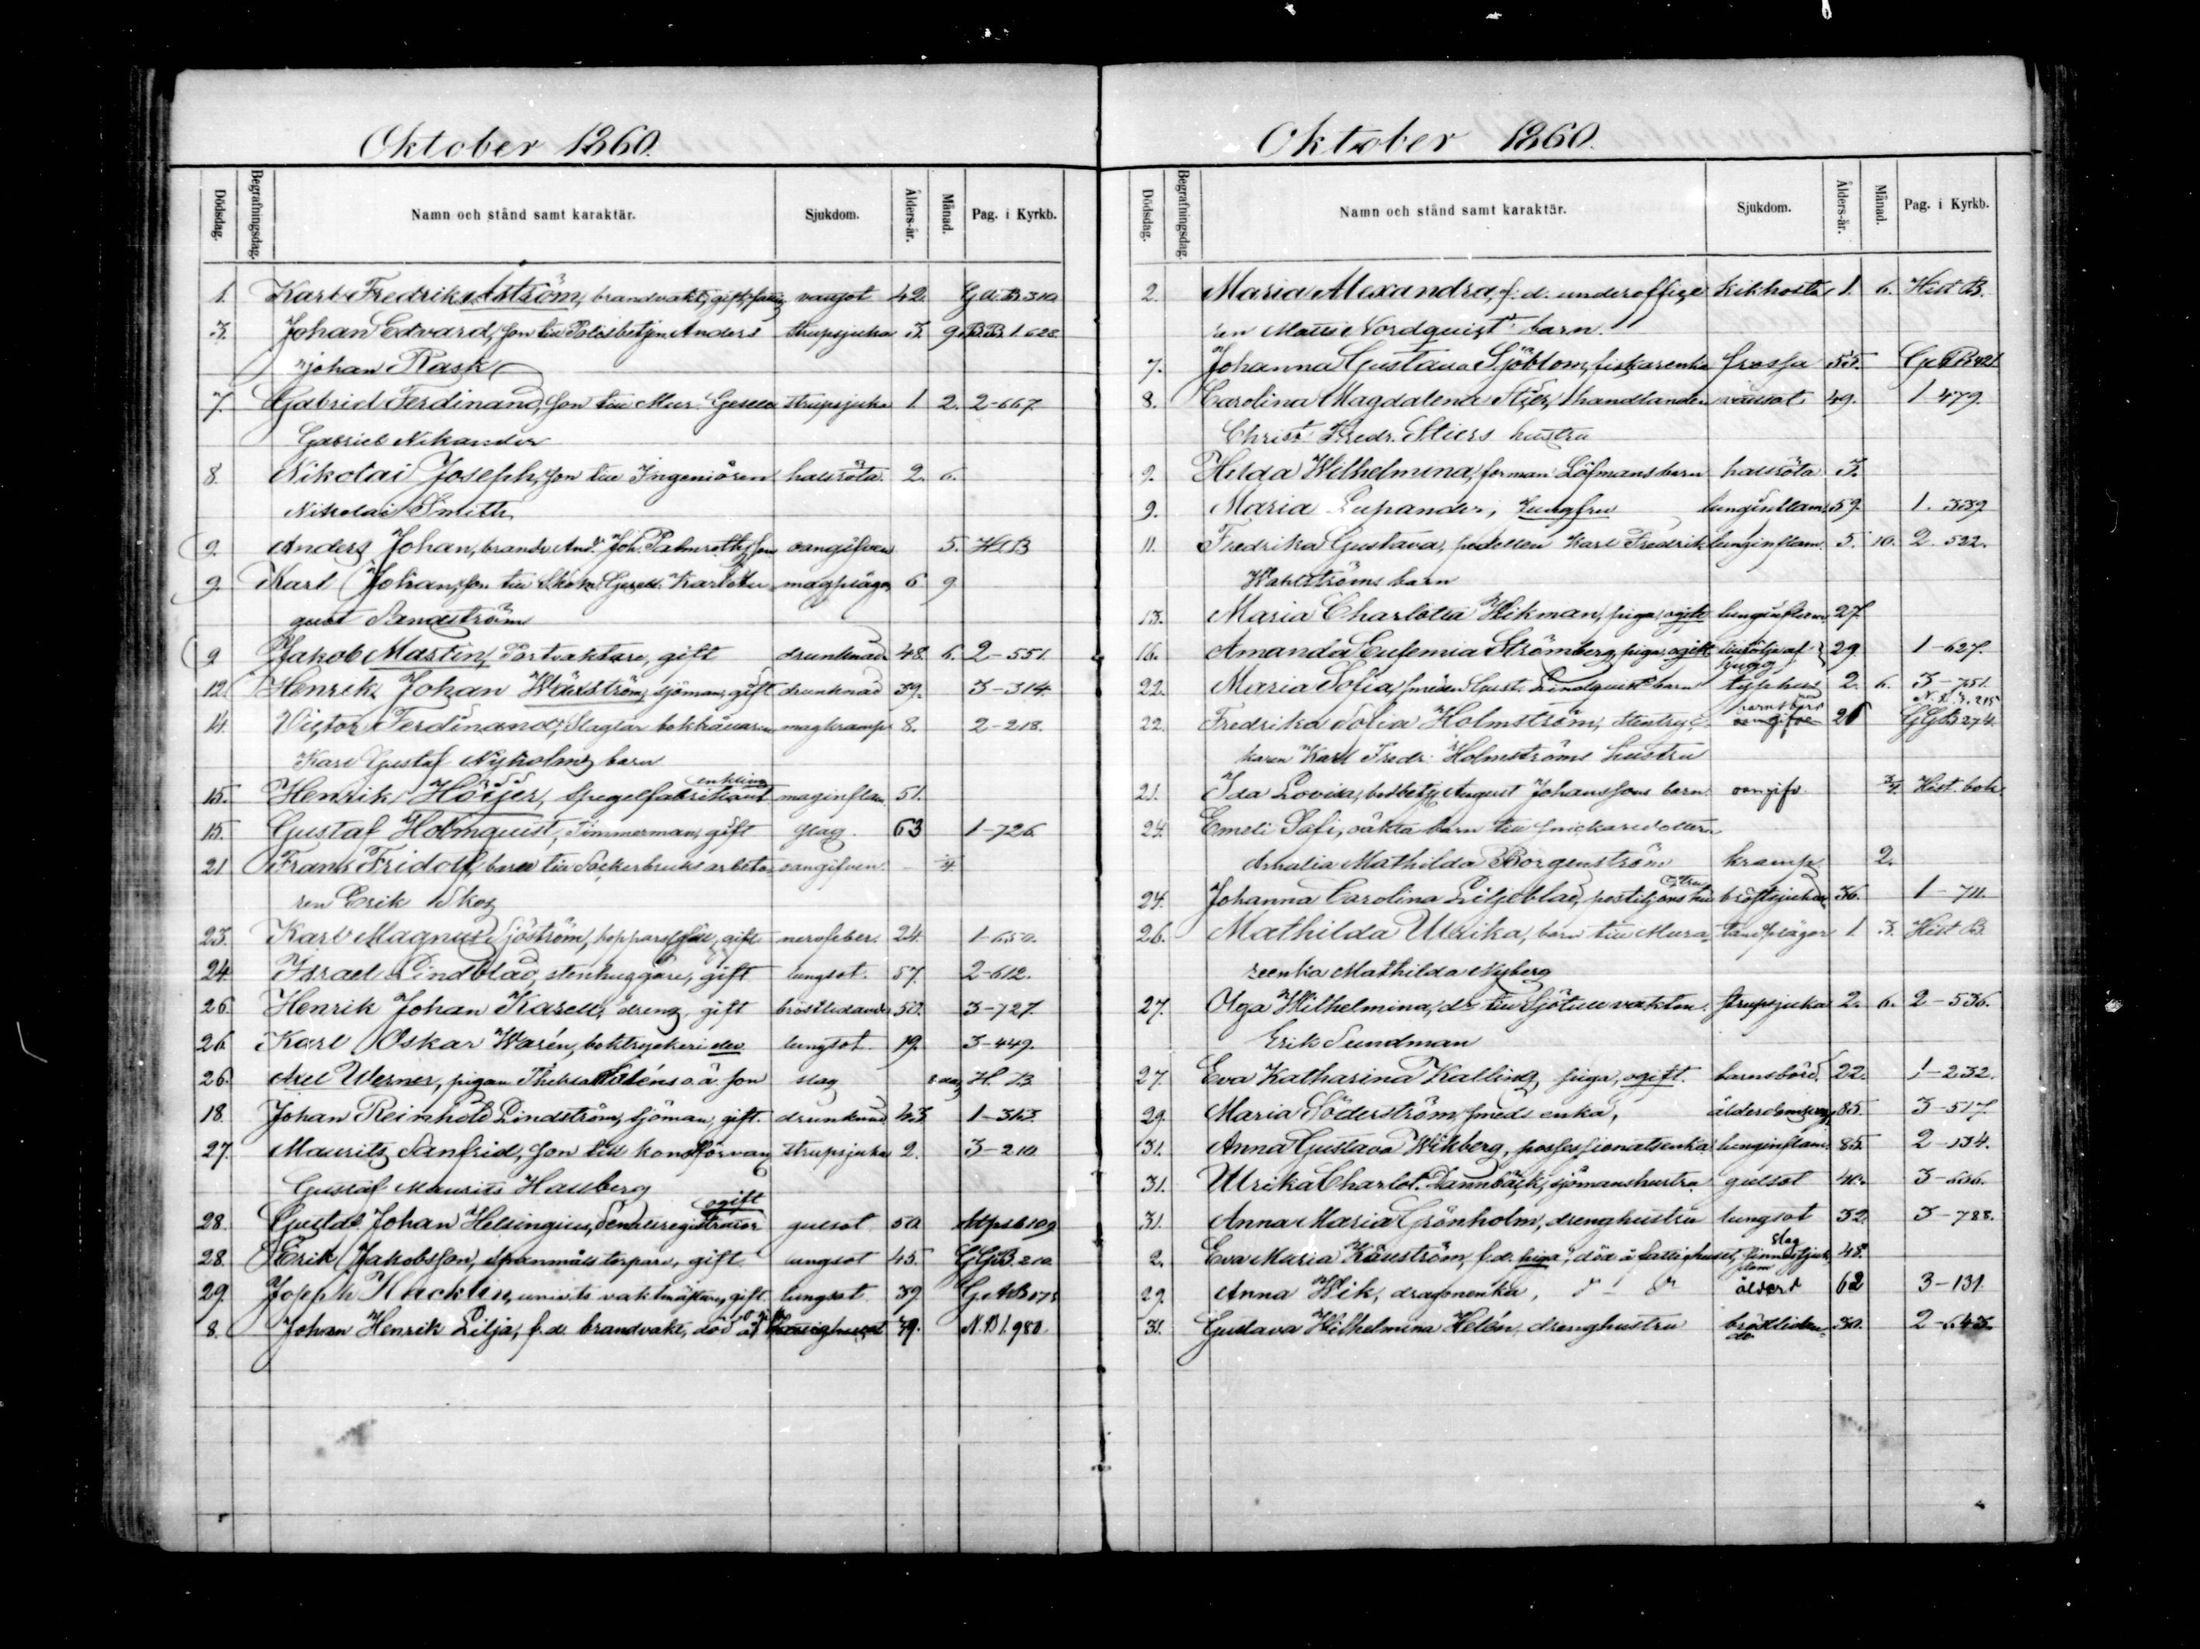 Oktober 1860.
Dödsdag. Begrafningsdag. Namn och stånd samt karaktär. Sjukdom. Ålders-år. Månad. Pag. i Kyrkb.
1. Karl Fredrik Åström, brandvakt, gift, vattsot 42. 310
3. Johan Edvard, son till Anders strupsjuka 3. 9. 1. 628.
Johan Rask
7. Gabriel Ferdinand, son till Mur. Gesell strupsjuka 1. 2. 2-667.
Gabriel Nikander
8. Nikolai Joseph, son till Ingeniören halsröta 2. 6.
Nikolai Smith
9. Anders Johan, brandv. And. Joh. Palmroths son oangifven 5. H B
9. Karl Johan, son till Gesell. Karl Au magplågor 6 9
gust Sandström
9 Jakob Mastin, Portvaktare, gift drunknad 48. 6. 2-551.
12. Henrik Johan sjöman, gift drunknad 39. 3-314.
14. Victor Ferdinand, Slagtar magkramp 8. 2-218.
Karl Gustaf Nyholms barn
enkling
15. Henrik Höijer, Spegelfabrikant maginflam. 51.
15. Gustaf Holmquist, Timmerman, gift slag. 63 1-726
21 Frans Fridolf, barn till Sockerbruks arbeta- oangifven. - ¼
ren Erik Skog
23. Karl Magnus Sjöström, gift nervfeber. 24. 1-650.
24. Israel Lindblad, stenhuggare, gift lungsot. 57. 2-612.
26. Henrik Johan Karell, dreng, gift bröstlidande 50. 3-727.
26. Karl Oskar Warén, boktryckeri elev lungsot 19. 3-449.
26. Axel Werner, pigan Thekla o.ä. son slag H. B.
18. Johan Reinhold Lindström, sjöman, gift. drunknad 43 1-343
27. Maurits Sanfrid, son till strupsjuka 2. 3-210
Gustaf Maurits Hallberg
ogift
28. Gustaf Johan Helsingius, Senatsregistrator gulsot 50 109
28. Erik Jakobsson, Spanmåls torpare, gift lungsot 45. GGB. 210
29. Joseph univ:ts vaktmästare, gift. lungsot. 39
8. Johan Henrik Lilja, f.d. brandvakt, död å 79. N.B.1.980.
Oktober 1860.
Dödsdag. Begrafningsdag. Namn och stånd samt karaktär. Sjukdom. Ålders-år. Månad. Pag. i Kyrkb.
2. Maria Alexandra, f.d. underoffice kikhosta 1. 6. Hist B.
ren Matts Nordquists barn.
7. Johanna Gustava Sjöblom, fiskarenka frossa 55.
8. Carolina Magdalena Stjer, handlanden vattsot 49. 1 479.
Christ. Fredr. Stiers hustru
9. Hilda Wilhelmina, forman Löfmans barn halsröta 3.
9. Maria Lupander, Jungfru lunginflam. 59. 1. 339
11. Fredrika Gustava, Karl Fredrik lunginflam. 5. 10. 2. 522.
Wahlströms barn
13. Maria Charlotta Wikman, piga, ogift lunginflam. 27.
16. Amanda Eufemia Strömberg, piga, ogift af 29 1-627.
hugg
22. Maria Sofia, smeden Gust. Lindquists barn typhus 2. 6. 3-751.
barnsbörd N. B. 3. 215
22. Fredrika Sofia Holmström, Stentryc- oangifven 26 GGB 274.
karen Karl Fredr. Holmströms hustru
21. Ida Lovisa, August Johanssons barn oangifv. ¾ Hist. bok.
24. Emeli Sofi, oäkta barn till snickaredottern
Amalia Mathilda Borgenström kramp 2.
24. Johanna Carolina Liljeblad, postiljons hustru bröstsjukdom 36. 1-711.
26. Mathilda Ulrika, barn till Mura- tandplågor 1 3. Hist B.
reenka Mathilda Nyberg
27. Olga Wilhelmina, dr till Sjötullvakten strupsjuka 2. 6. 2-536.
Erik Sundman
27. Eva Katharina Kalling, piga, ogift. barnsbörd. 22. 1-232.
29. Maria Söderström, smeds enka, ålderdoms 85. 3-517.
31. Anna Gustava Wikberg, possessionatsenka lunginflam. 85 2-134.
31. Ulrika Charlot. Dannbäck, sjömanshustru gulsot 40. 3-686.
31. Anna Maria Grönholm, drenghustru lungsot 32. 3-788.
slag
2. Eva Maria f.d. piga, död å fattighuset, 48.
29. Anna Wik, dragonenka, ålderd 62 3-131.
31. Gustava Wilhelmina Helén, drenghustru bröstliden- 30. 2-643
de